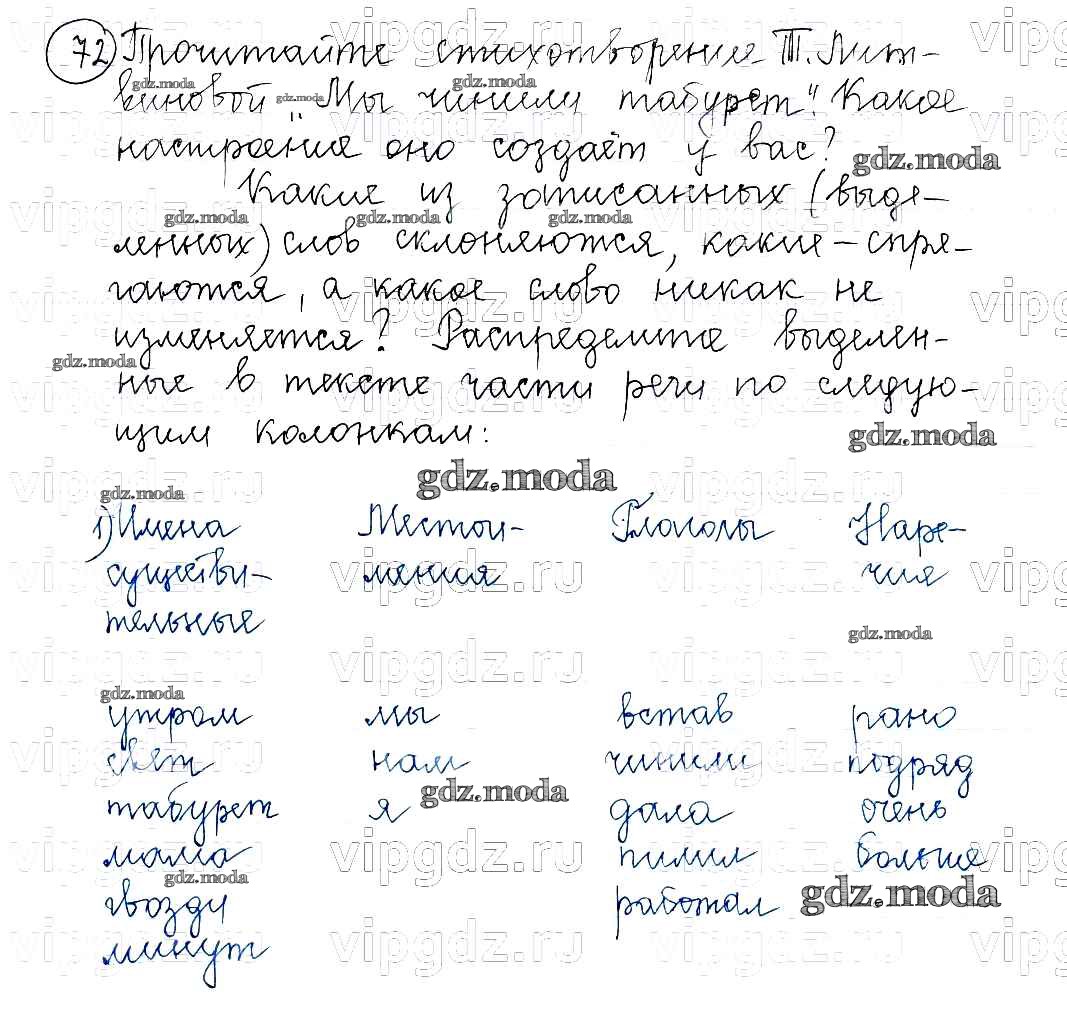 72 Прочитайте стихотворение Т. Лит-
виновой „Мы чинили табурет". Какое
настроение оно создаёт у вас?
Какие из записанных (выде-
ленных) слов склоняются, какие – спря-
гаются, а какое слово никак не
изменяется? Распределите выделен-
ные в тексте части речи по следую-
щим колонкам:
1) Имена Местои- Глаголы Наре-
существи- мения чия
тельные
утром мы встав рано
свет нам чинили подряд
табурет я дала очень
мама пилил больше
гвозди работал
минут
gdz.moda
vipgdz.ru